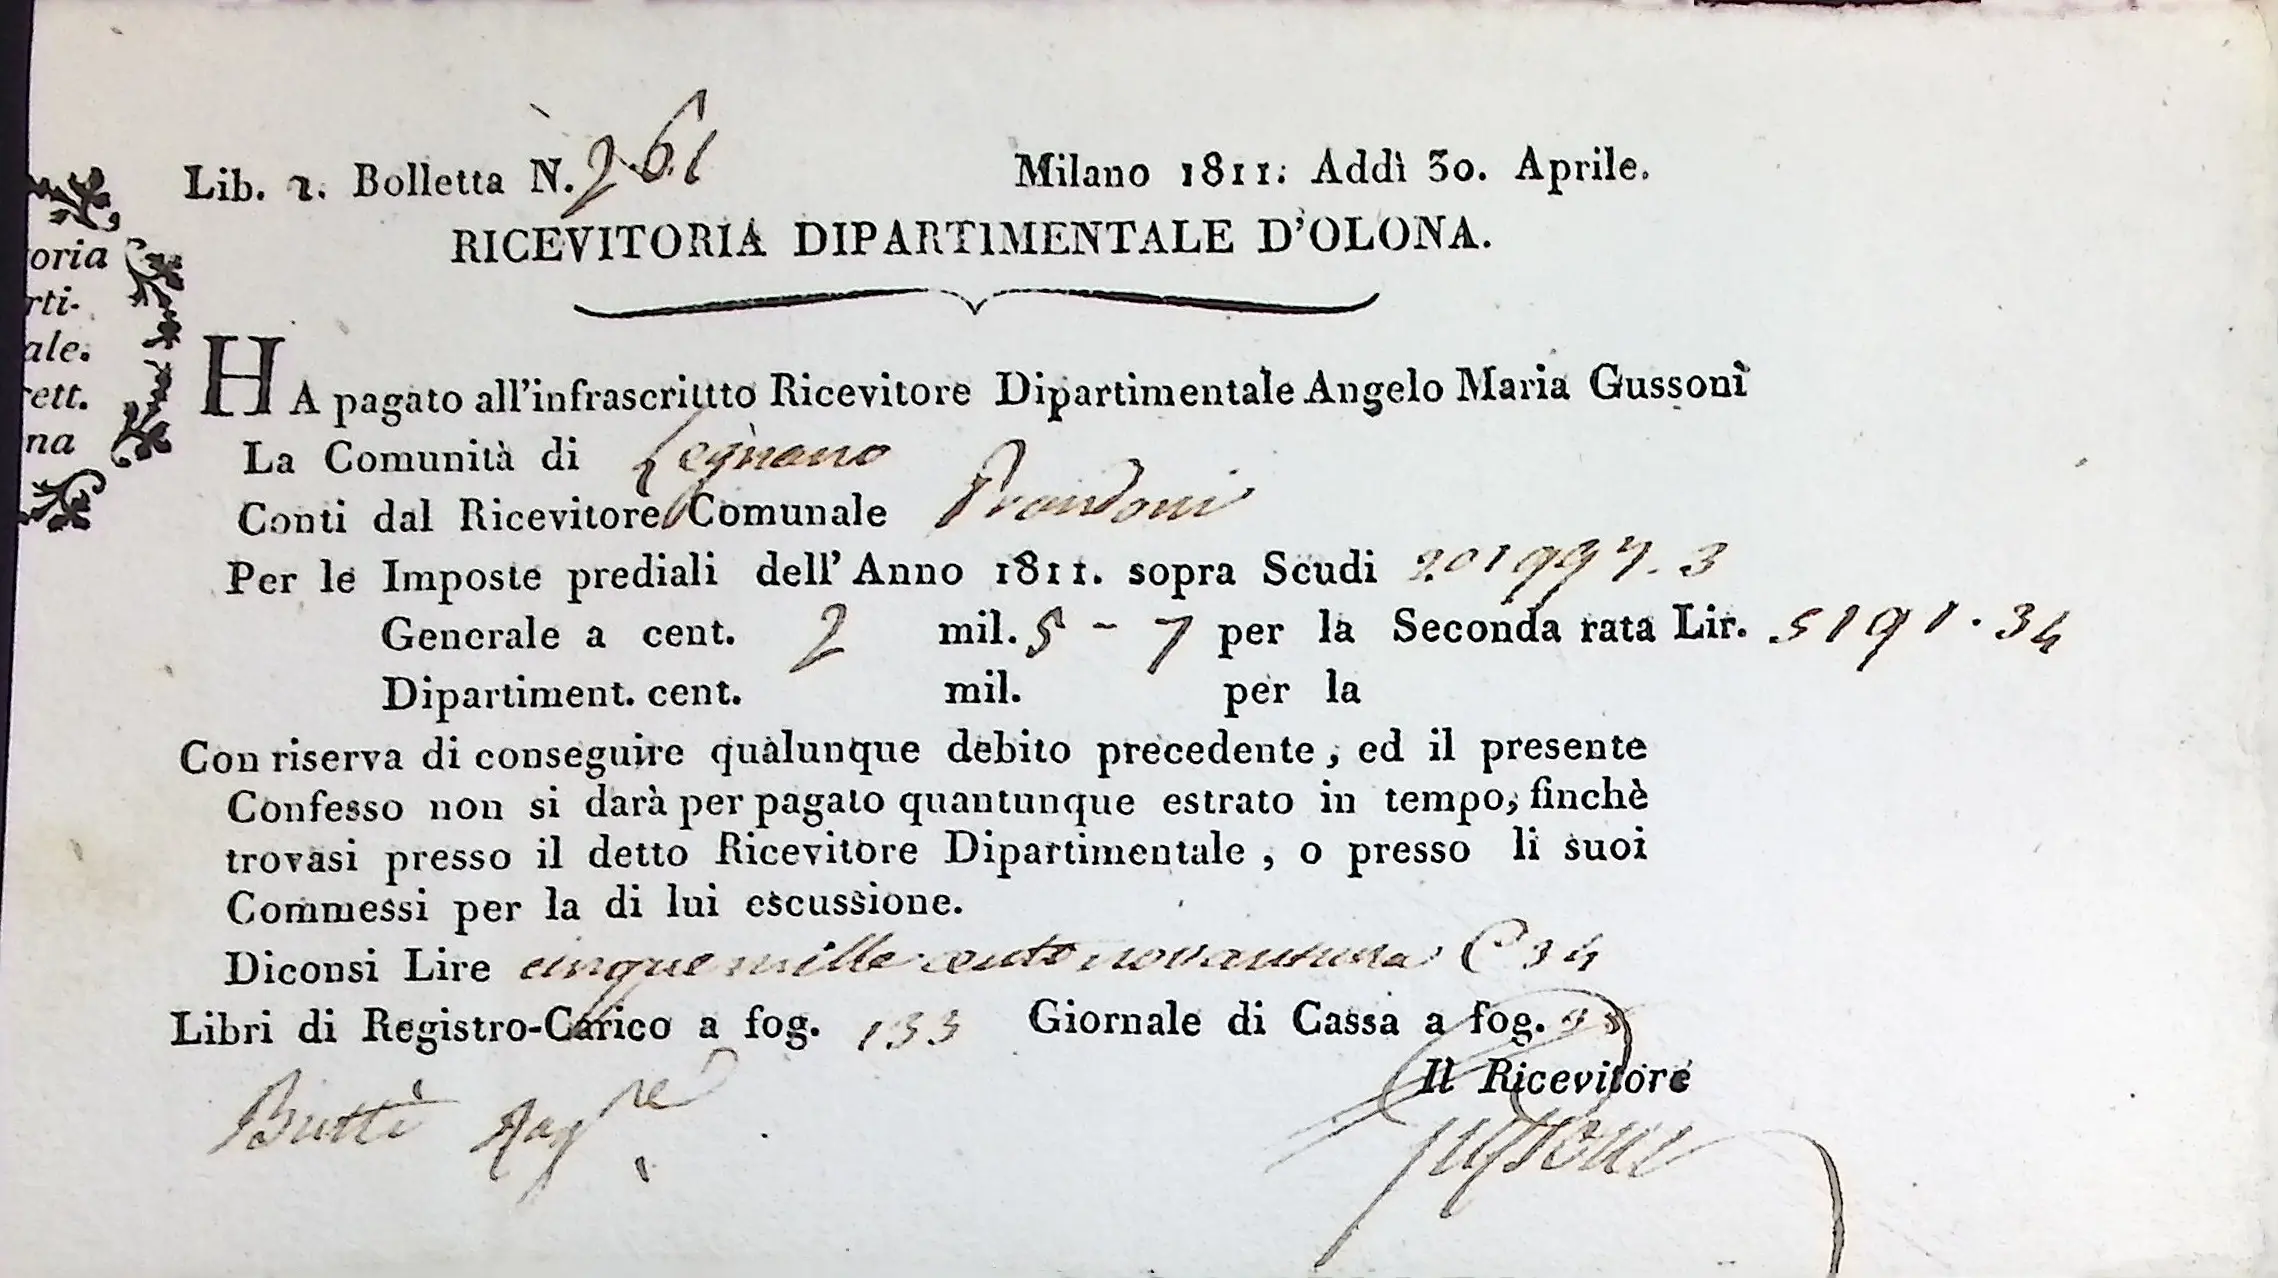 Lib. 2. Bolletta N. 261
Milano 1811. Addì 30. Aprile.
RICEVITORIA DIPARTIMENTALE D'OLONA.
oria
rti-
ale.
ett.
na
HA pagato all'infrascrittto Ricevitore Dipartimentale Angelo Maria Gussoni
La Comunità di Legnano
Conti dal Ricevitore Comunale Prandoni
Per le Imposte prediali dell'Anno 1811. sopra Scudi 201997. 3
Generale a cent. 2 mil. 5 - 7 per la Seconda rata Lir. 5191. 34
Dipartiment. cent. mil. per la
Con riserva di conseguire qualunque debito precedente, ed il presente
Confesso non si darà per pagato quantunque estrato in tempo, finchè
trovasi presso il detto Ricevitore Dipartimentale, o presso li suoi
Commessi per la di lui escussione.
Diconsi Lire cinque mille cento novantuna C 34
Libri di Registro-Carico a fog. 133 Giornale di Cassa a fog.
Il Ricevitore
Butti Rag.re
Gussoni